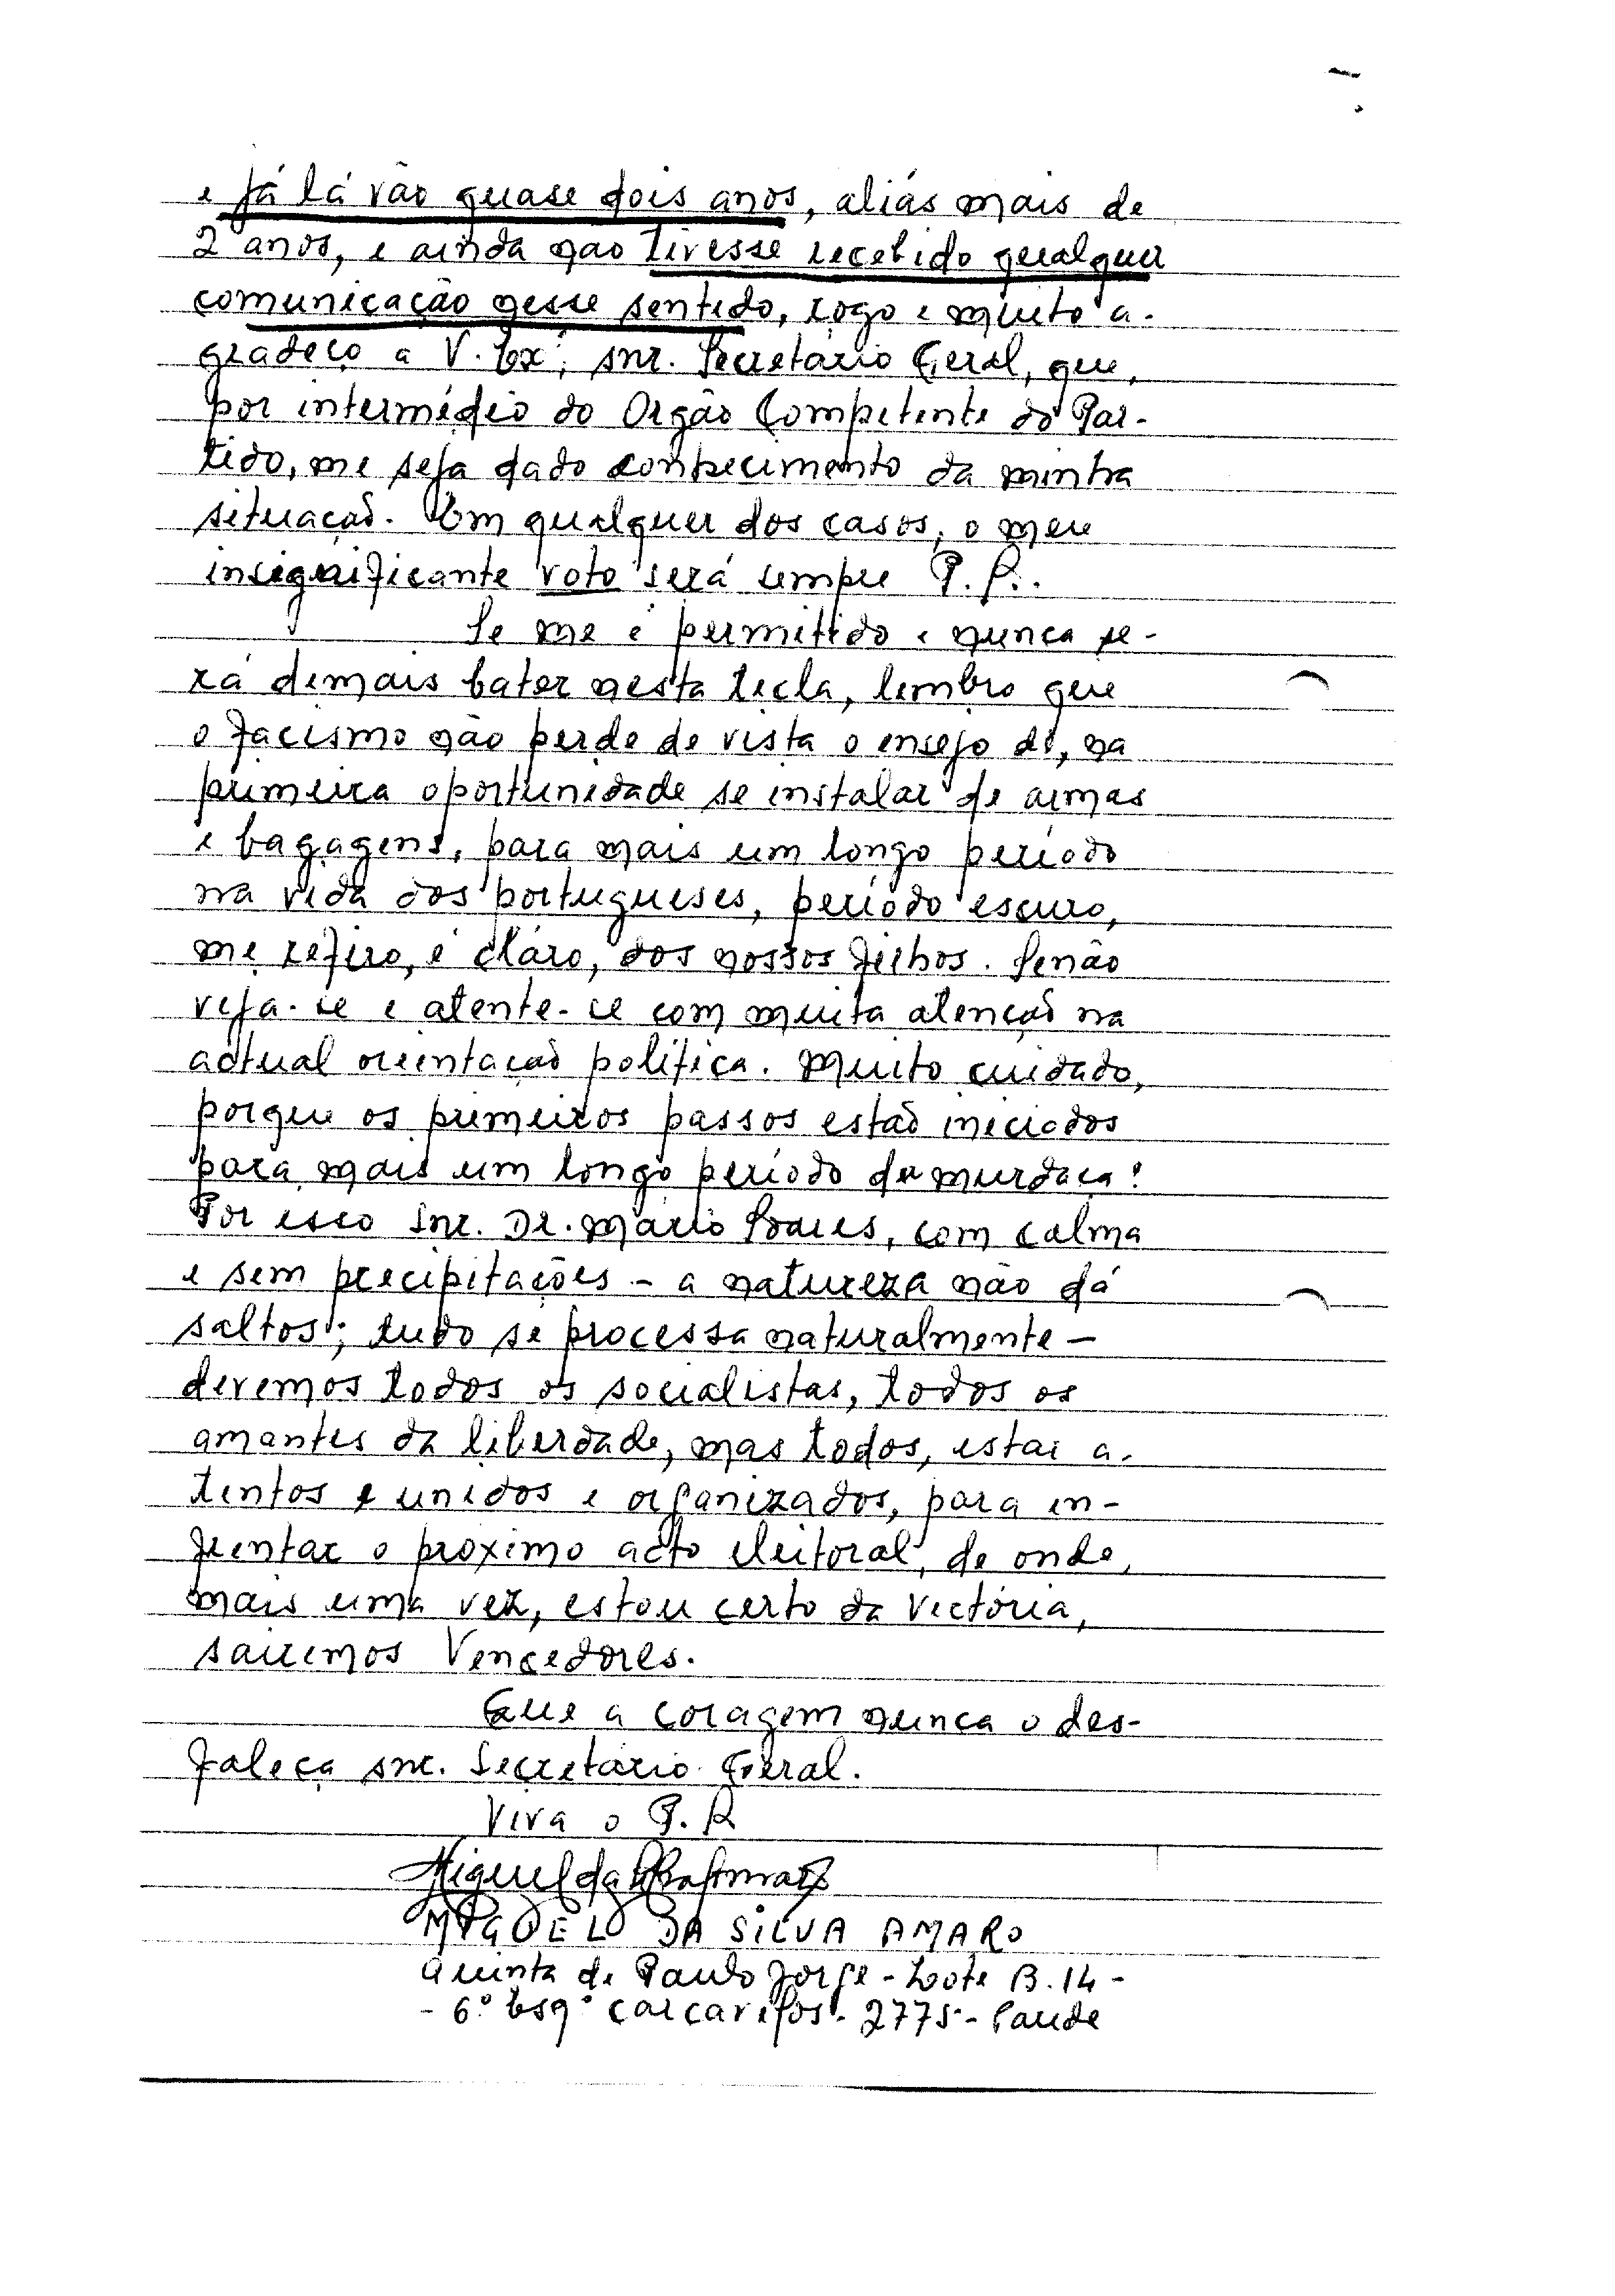 e já lá vão quase dois anos, aliás mais de
2 anos, e ainda nao tivesse recebido qualquer
comunicação nesse sentido, rogo e muito a-
gradeço a V. Exª, snr. Secretário Geral, que,
por intermédio do Orgão Competente do Par-
tido, me seja dado conhecimento da minha
situação. Em qualquer dos casos, o meu
insignificante voto será sempre P.S..
Se me é permitido e nunca se-
rá demais bater nesta tecla, lembro que
o facismo não perde de vista o ensejo de, na
primeira oportunidade se instalar de armas
e bagagens, para mais um longo período
na vida dos portugueses, período escuro,
me refiro, é cláro, dos nossos filhos. Senão
veja-se e atente-se com muita atenção na
actual orientação política. Muito cuidado,
porque os primeiros passos estão iniciados
para mais um longo período de murdaça!
Por isso Snr. Dr. Mário Soares, com calma
e sem precipitações - a natureza não dá
saltos; tudo se processa naturalmente -
devemos todos os socialistas, todos os
amantes da liberdade, mas todos, estar a-
tentos e unidos e organizados, para en-
frentar o proximo acto eleitoral, de onde,
mais uma vez, estou certo da victória,
sairemos Vencedores.
Que a coragem nunca o des-
faleça snr. Secretário Geral.
Viva o P.S.
Miguel da Silva Amaro
MIGUEL DA SILVA AMARO
Quinta de Paulo Jorge - Lote B.14 -
- 6º Esqº Carcavelos - 2775 -